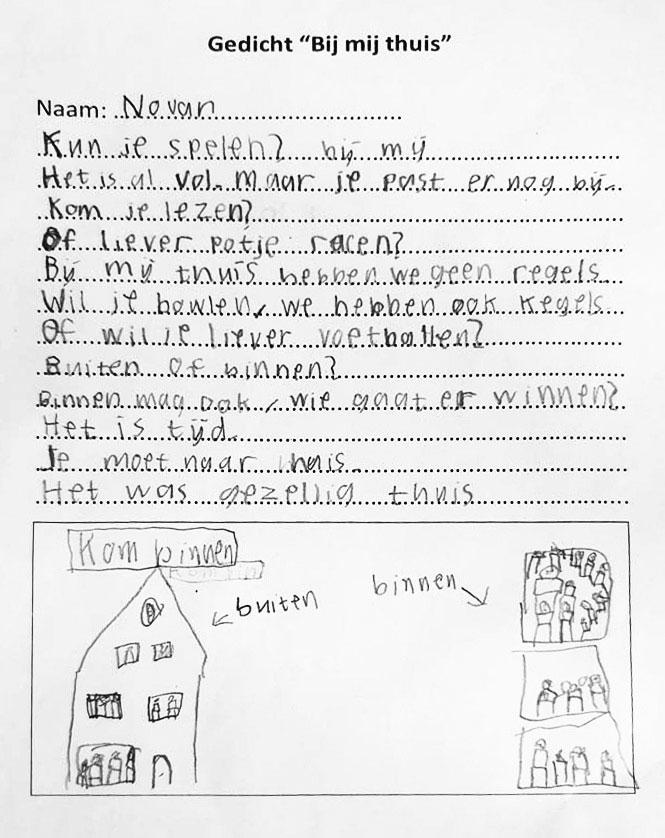 Gedicht “Bij mij thuis”
Naam: Novan
Kun je spelen? bij mij
Het is al vol. Maar je past er nog bij.
Kom je lezen?
Of liever potje racen?
Bij mij thuis hebben we geen regels
Wil je bowlen, we hebben ook kegels
Of wil je liever voetballen?
Buiten of binnen?
Binnen mag ook, wie gaat er winnen?
Het is tijd.
Je moet naar huis.
Het was gezellig thuis
Kom binnen
buiten
binnen